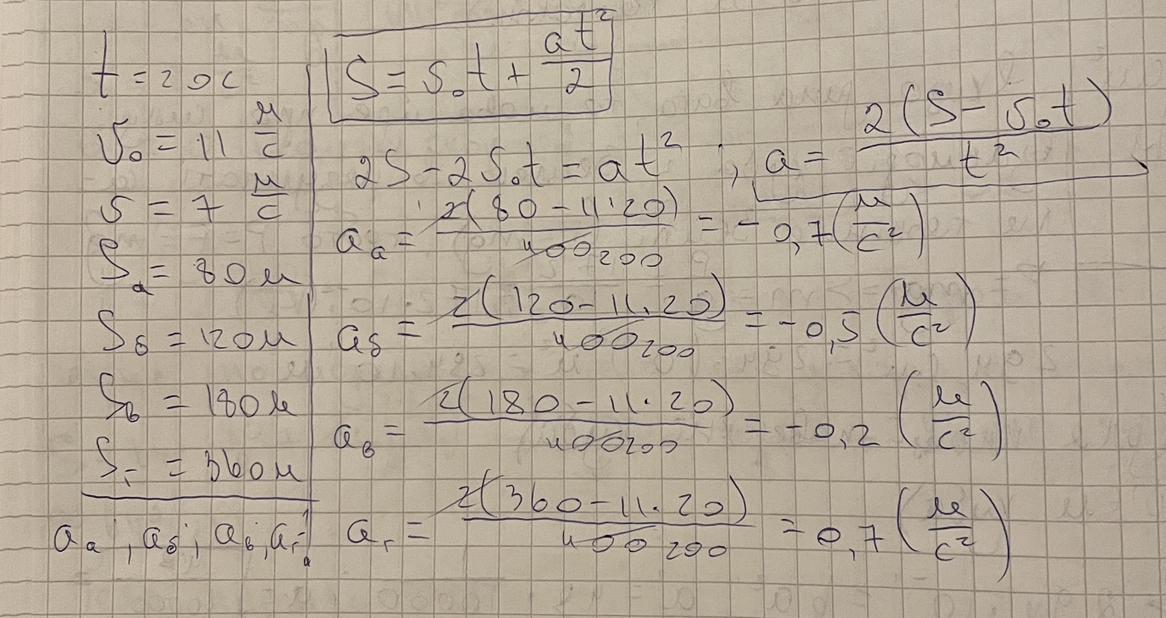 t = 20с
υ₀ = 11 м/с
υ = 7 м/с
Sₐ = 80м
Sб = 120м
Sв = 180м
Sг = 360м
aₐ, aб, aв, aг
S = υ₀t + at²/2
2S - 2υ₀t = at² ; a = 2(S - υ₀t)/t²
aₐ = 2(80 - 11·20)/400 200 = -0,7 (м/с²)
aб = 2(120 - 11·20)/400 200 = -0,5 (м/с²)
aв = 2(180 - 11·20)/400 200 = -0,2 (м/с²)
aг = 2(360 - 11·20)/400 200 = 0,7 (м/с²)